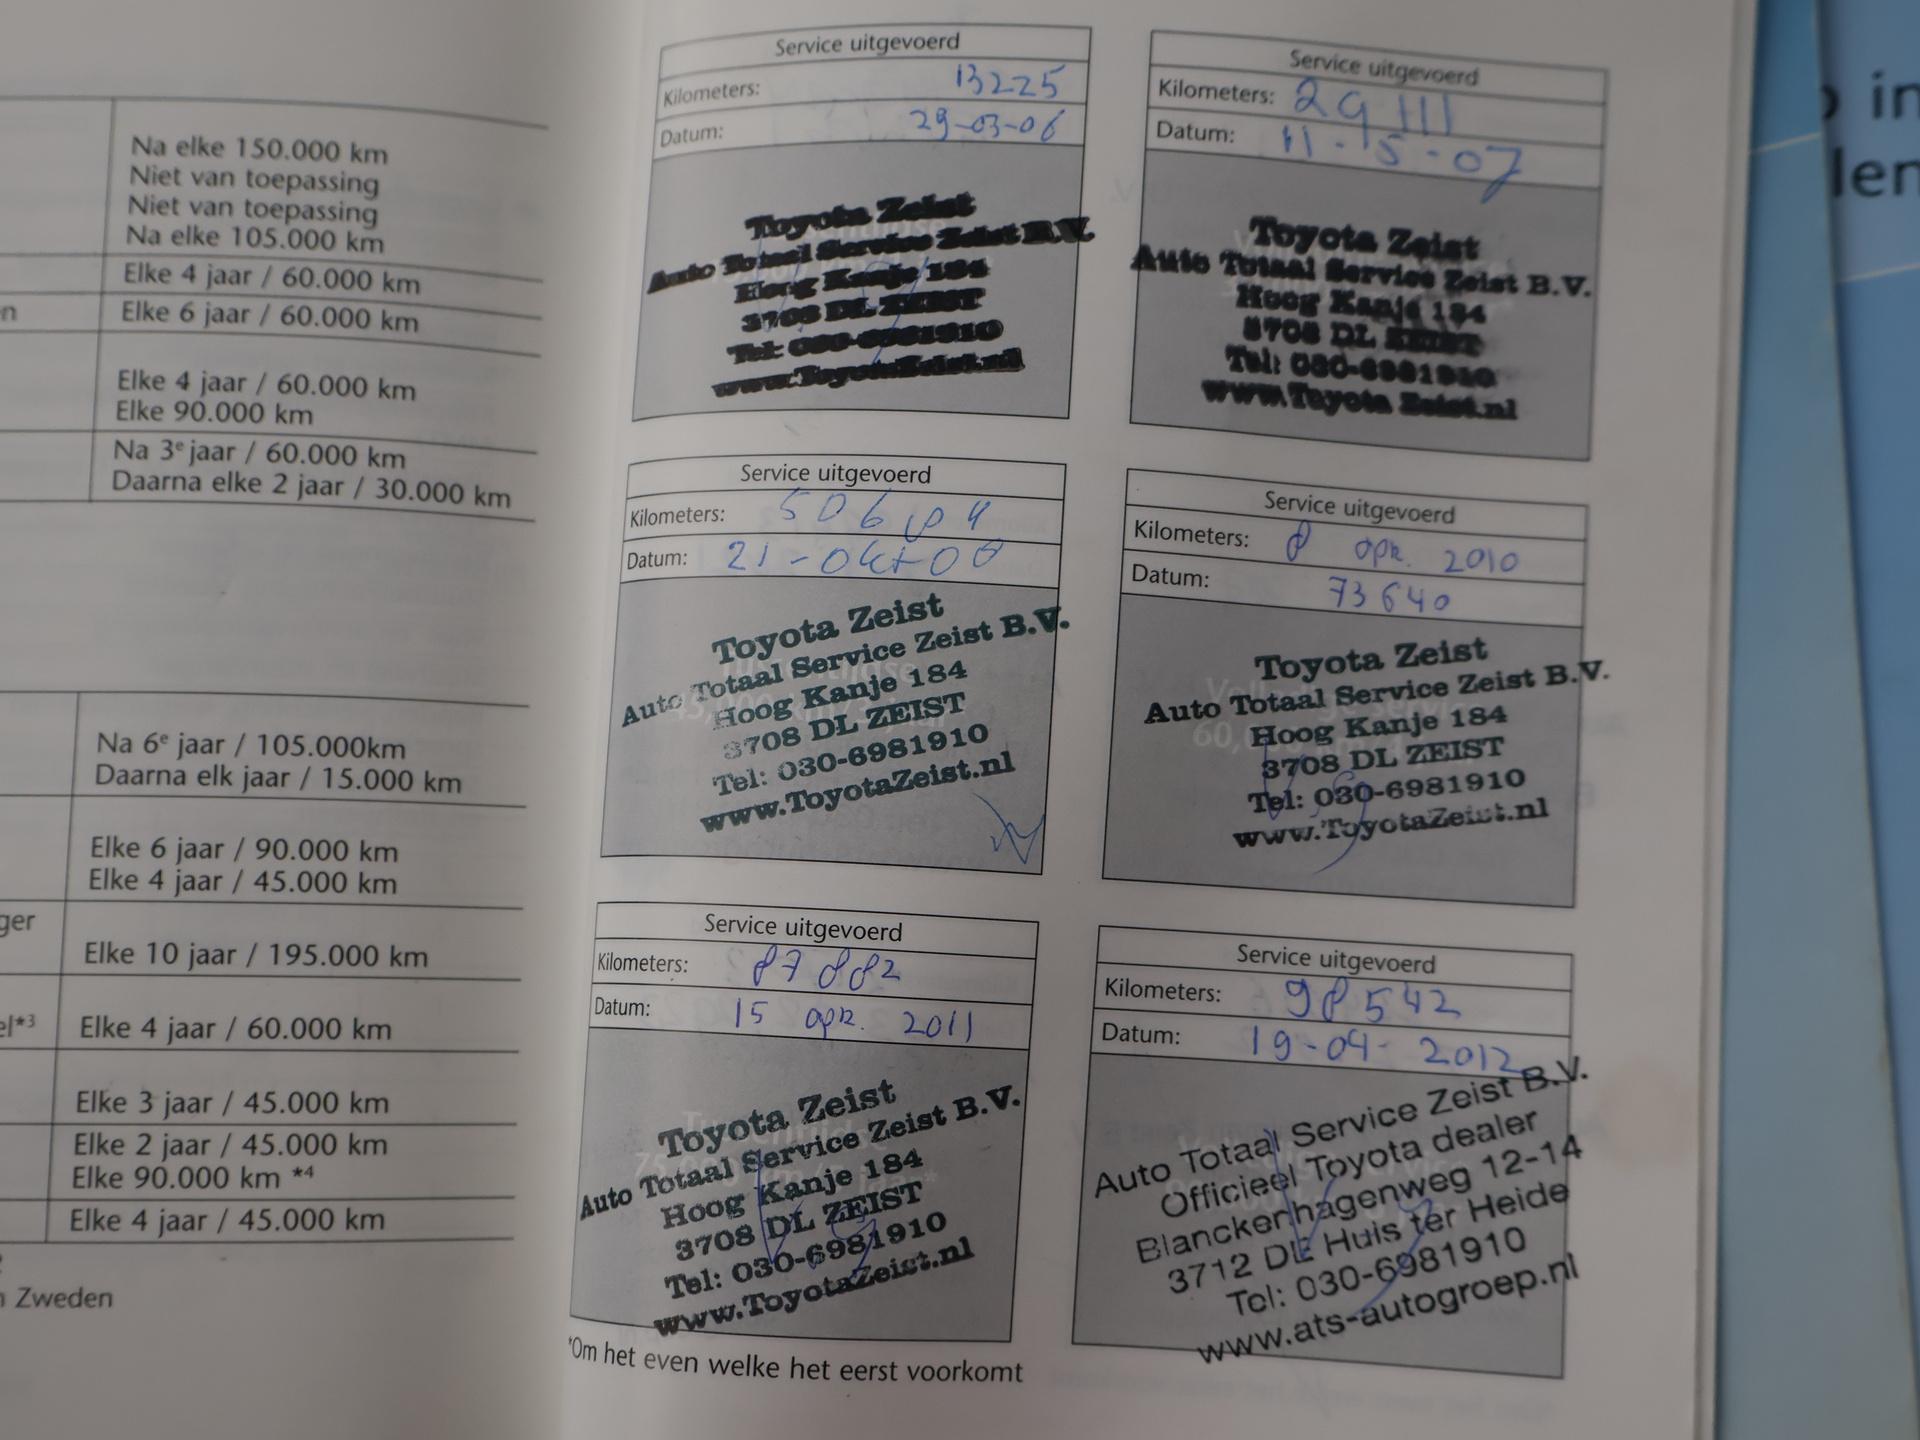 Na elke 150.000 km
Niet van toepassing
Niet van toepassing
Na elke 105.000 km
Elke 4 jaar / 60.000 km
Elke 6 jaar / 60.000 km
Elke 4 jaar / 60.000 km
Elke 90.000 km
Na 3e jaar / 60.000 km
Daarna elke 2 jaar / 30.000 km
Na 6e jaar / 105.000km
Daarna elk jaar / 15.000 km
Elke 6 jaar / 90.000 km
Elke 4 jaar / 45.000 km
ger
Elke 10 jaar / 195.000 km
el*3 Elke 4 jaar / 60.000 km
Elke 3 jaar / 45.000 km
Elke 2 jaar / 45.000 km
Elke 90.000 km *4
Elke 4 jaar / 45.000 km
Zweden
Service uitgevoerd
Kilometers: 13225
Datum: 29-03-06
Toyota Zeist
Auto Totaal Service Zeist B.V.
Hoog Kanje 184
3708 DL ZEIST
Tel: 030-6981910
www.ToyotaZeist.nl
Service uitgevoerd
Kilometers: 29111
Datum: 11-15-07
Toyota Zeist
Auto Totaal Service Zeist B.V.
Hoog Kanje 184
3708 DL ZEIST
Tel: 030-6981910
www.ToyotaZeist.nl
Service uitgevoerd
Kilometers:
Datum: 21-okt-08
Toyota Zeist
Auto Totaal Service Zeist B.V.
Hoog Kanje 184
3708 DL ZEIST
Tel: 030-6981910
www.ToyotaZeist.nl
Service uitgevoerd
Kilometers: 8 apr. 2010
Datum: 73640
Toyota Zeist
Auto Totaal Service Zeist B.V.
Hoog Kanje 184
3708 DL ZEIST
Tel: 030-6981910
www.ToyotaZeist.nl
Service uitgevoerd
Kilometers: 87882
Datum: 15 apr. 2011
Toyota Zeist
Auto Totaal Service Zeist B.V.
Hoog Kanje 184
3708 DL ZEIST
Tel: 030-6981910
www.ToyotaZeist.nl
Service uitgevoerd
Kilometers: 98542
Datum: 19-04-2012
Auto Totaal Service Zeist B.V.
Officieel Toyota dealer
Blanckenhagenweg 12-14
3712 DE Huis ter Heide
Tel: 030-6981910
www.ats-autogroep.nl
*Om het even welke het eerst voorkomt
in
len